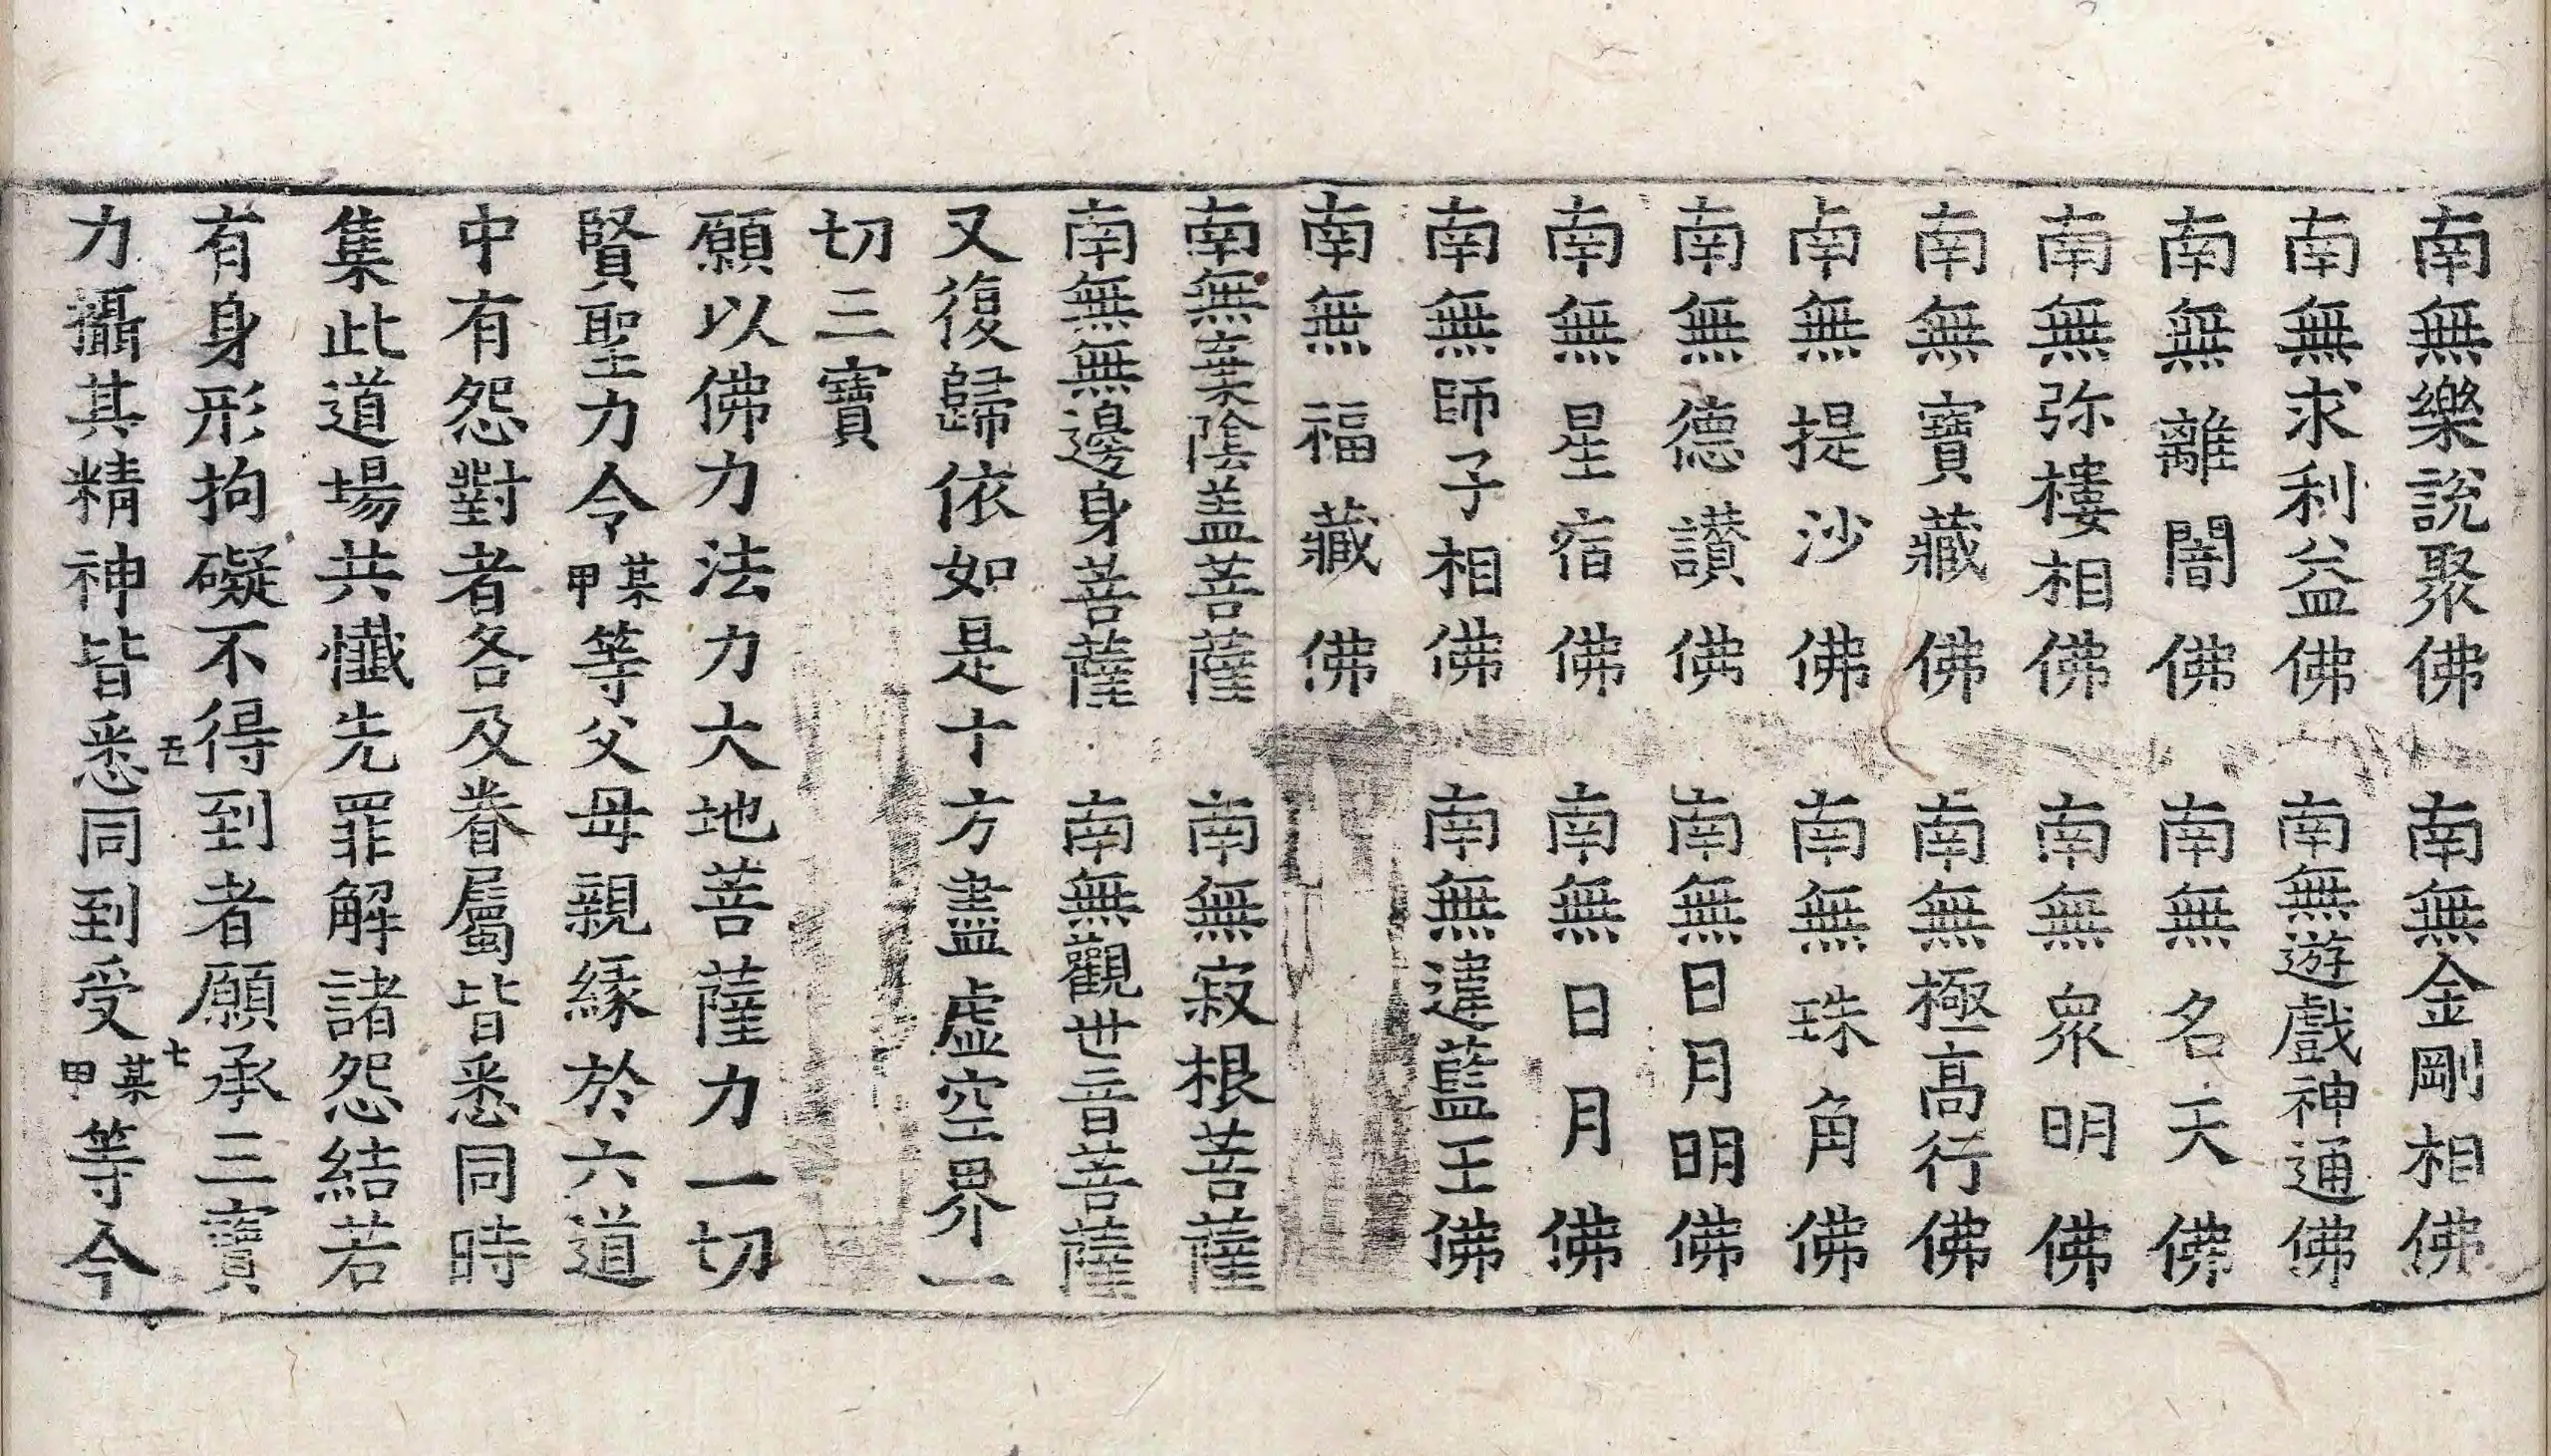 南無樂說聚佛　南無金剛相佛
南無求利益佛　南無遊戲神通佛
南無離闇佛　南無名天佛
南無弥樓相佛　南無衆明佛
南無寶藏佛　南無極高行佛
南無提沙佛　南無珠角佛
南無德讃佛　南無日月明佛
南無星宿佛　南無日月佛
南無師子相佛　南無違藍王佛
南無福藏佛
南無棄陰盖菩薩　南無寂根菩薩
南無無邊身菩薩　南無觀世音菩薩
又復歸依如是十方盡虛空界一
切三寶
願以佛力法力大地菩薩力一切
賢聖力令某甲等父母親緣於六道
中有怨對者各及眷屬皆悉同時
集此道場共懺先罪解諸怨結若
有身形拘礙不得到者願承三寶
力攝其精神皆悉同到受某甲等今
五
七